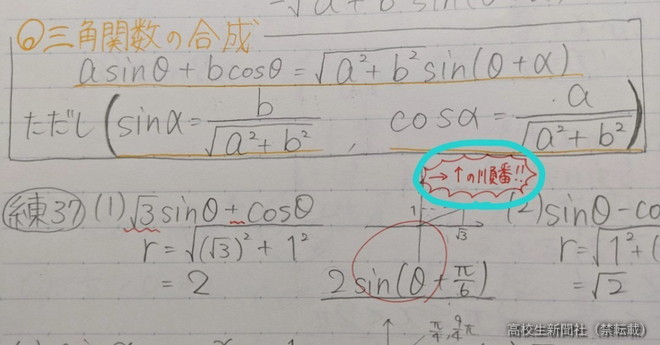 ◎三角関数の合成
asinθ+bcosθ=√a²+b² sin(θ+α)
ただし(sinα=b/√a²+b² , cosα=a/√a²+b²)
→↑の順番!!
練37 (1)√3sinθ+cosθ
r=√(√3)²+1²
=2
1
√3
2sin(θ+π/6)
(2)sinθ-co
r=√1²+(
=√2
π/4, 9/4π
高校生新聞社(禁転載)